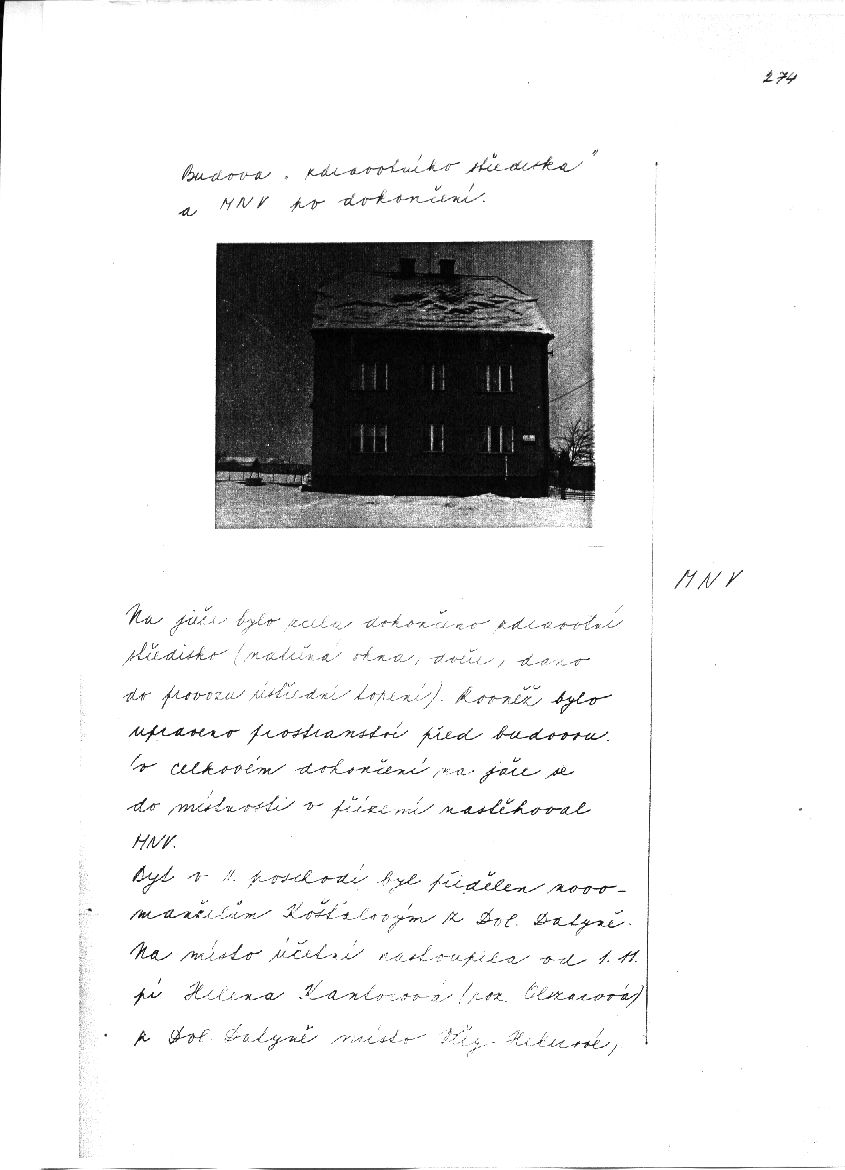 274
Budova „zdravotního střediska"
a MNV po dokončení.
MNV
Na jaře bylo zcela dokončeno zdravotní
středisko (natřena okna, dveře, dáno
do provozu ústřední topení). Rovněž bylo
upraveno prostranství před budovou.
Po celkovém dokončení na jaře se
do místnosti v přízemí nastěhoval
MNV.
Byt v II. poschodí byl přidělen novo-
manželům Košťálovým z Dol. Datyně.
Na místo účetní nastoupila od 1.11.
pí Helena Kantorová (roz.
z Dol. Datyně místo